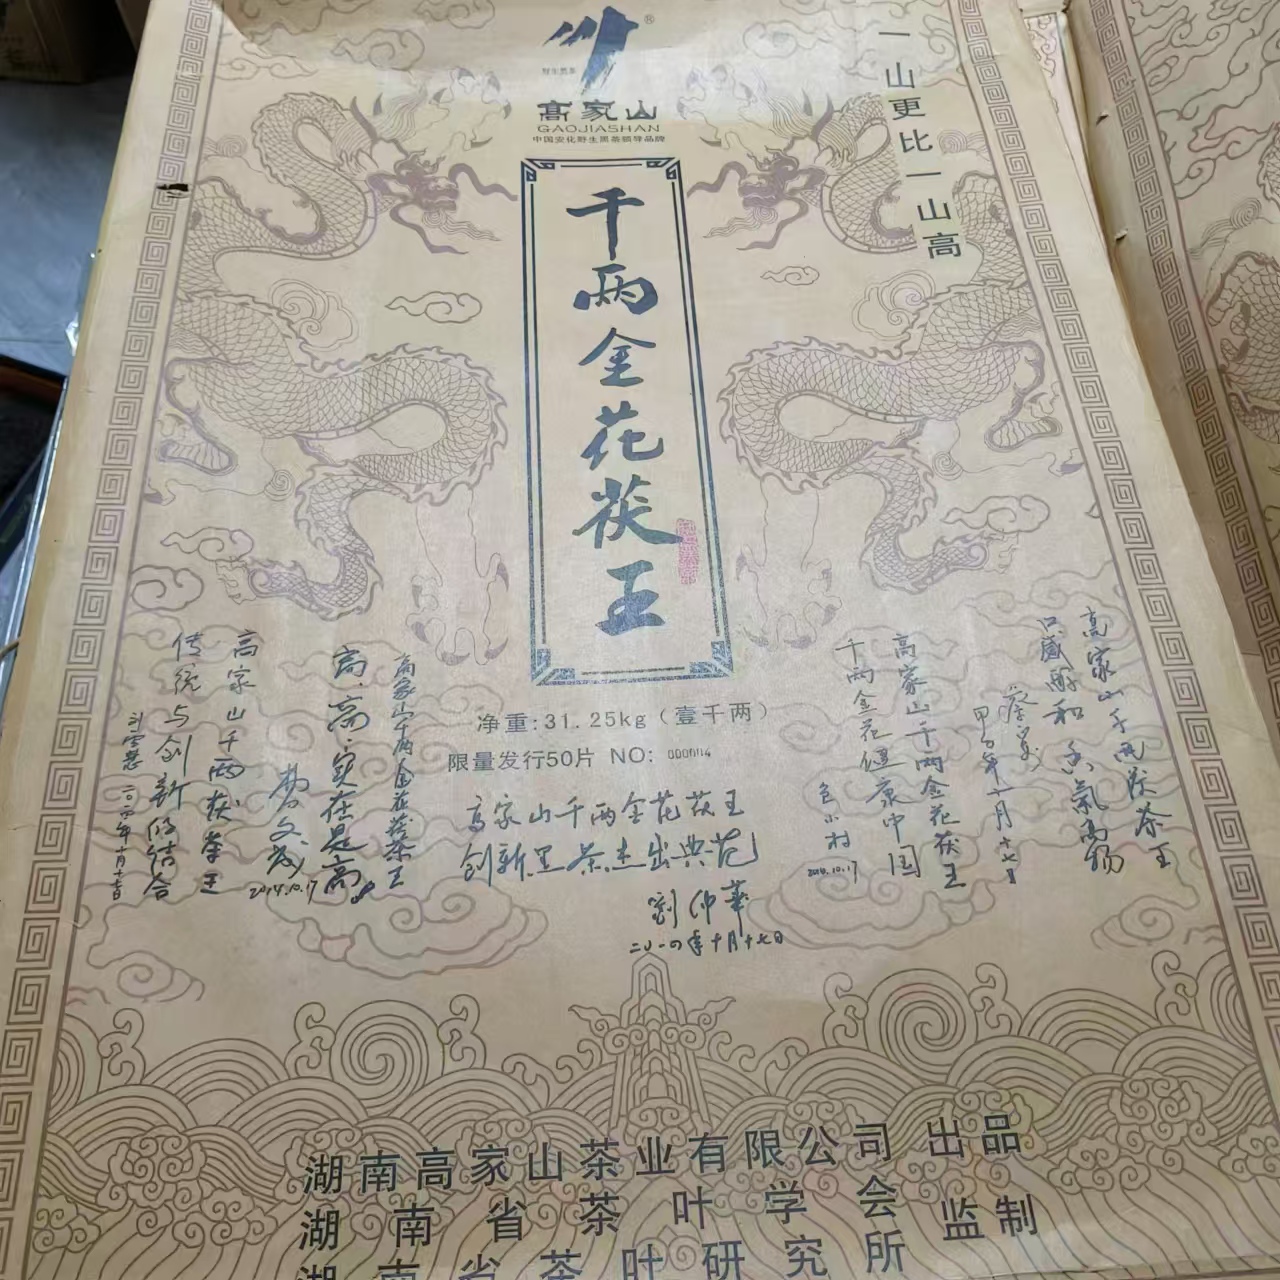 野生黑茶
高家山
GAOJIASHAN
中国安化野生黑茶领导品牌
一山更比一山高
千两金花茯王
净重:31.25kg（壹千两）
限量发行50片 NO: 000004
高家山千两茯茶王
只感醇和香气高扬
甲午年十月十七日
高家山千两金花茯王
千两金花健康中国
2014.10.17
高家山千两金花茯王
创新黑茶杰出典范
劉仲華
二〇一四年十月十七日
高家山千两金花茯茶王
高.高.实在是高
2014.10.17
高家山千两茯茶王
传统与创新的结合
二〇一四年十月十七日
湖南高家山茶业有限公司 出品
湖南省茶叶学会
湖南省茶叶研究所 监制